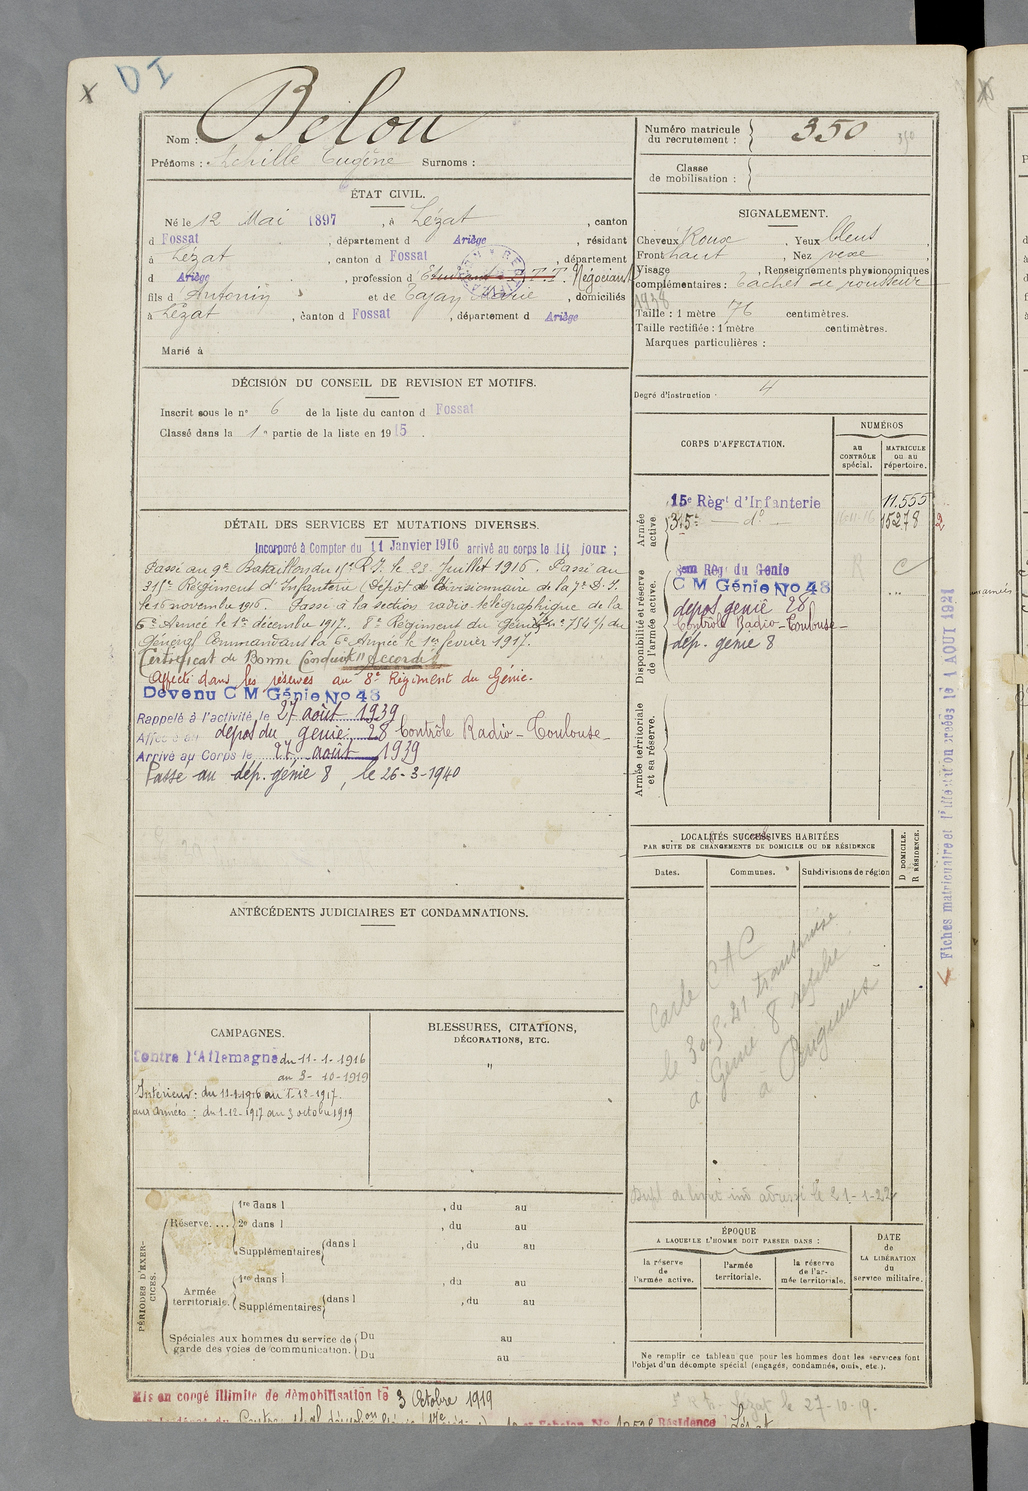 X D I
Nom : Belou
Prénoms : Achille Eugène Surnoms :
ÉTAT CIVIL.
Né le 12 Mai 1897, à Lézat, canton
d Fossat, département d Ariège, résidant
à Lézat, canton d Fossat, département
d Ariège, profession d Etudiant P.T.T. Négociant
fils d Antonin et de Tajan Marie, domiciliés
à Lézat, canton d Fossat, département d Ariège
Marié à
DÉCISION DU CONSEIL DE REVISION ET MOTIFS.
Inscrit sous le n° 6 de la liste du canton d Fossat
Classé dans la 1e partie de la liste en 1915.
DÉTAIL DES SERVICES ET MUTATIONS DIVERSES.
Incorporé à Compter du 11 Janvier 1916 arrivé au corps le dit jour ;
Passé au 9e Bataillon du 15e R.I. le 23 Juillet 1916. Passé au
315e Régiment d'Infanterie (Dépôt divisionnaire de la 7e D.I.
le 16 novembre 1916. Passé à la section radio-télégraphique de la
6e Armée le 1er décembre 1917. 8e Régiment du Génie
Général Commandant la 6e Armée le 1er février 1917.
Certificat de Bonne Conduite "Accordé"
Affecté dans les réserves au 8e Régiment du Génie.
Devenu C M Génie No 48
Rappelé à l'activité le 27 août 1939
Affecté au dépot du génie 28 Contrôle Radio-Toulouse-
Arrivé au Corps le 27 août 1939
Passé au dép. génie 8, le 26-3-1940
ANTÉCÉDENTS JUDICIAIRES ET CONDAMNATIONS.
CAMPAGNES.
Contre l'Allemagne du 11-1-1916
au 3-10-1919
Intérieur : du 11-1-1916 au 1-12-1917.
aux Armées : du 1-12-1917 au 3 octobre 1919
BLESSURES, CITATIONS,
DÉCORATIONS, ETC.
"
PÉRIODES D'EXERCICES.
Réserve....
1re dans l , du au
2e dans l , du au
Supplémentaires dans l , du au
Armée territoriale.
1re dans l , du au
Supplémentaires dans l , du au
Spéciales aux hommes du service de garde des voies de communication.
Du au
Du au
Mis en congé illimité de démobilisation le 3 Octobre 1919
Résidence Lézat
Lézat le 27-10-19.
Numéro matricule
du recrutement : 350
350
Classe
de mobilisation :
SIGNALEMENT.
Cheveux Roux, Yeux bleus,
Front haut, Nez vexe,
Visage , Renseignements physionomiques
complémentaires : Taches de rousseur
1938
Taille : 1 mètre 76 centimètres.
Taille rectifiée : 1 mètre centimètres.
Marques particulières :
Degré d'instruction : 4
CORPS D'AFFECTATION.
NUMÉROS
AU CONTRÔLE spécial.
MATRICULE OU AU répertoire.
Armée active
15e Règt d'Infanterie 11.555
315e - do - 15278 2
Disponibilité et réserve de l'armée active.
8em Rég. du Genie R C
C M Génie No 48
depot génie 28
Contrôle Radio-Toulouse-
dép. génie 8
Armée territoriale et sa réserve.
LOCALITÉS SUCCESSIVES HABITÉES
PAR SUITE DE CHANGEMENTS DE DOMICILE OU DE RÉSIDENCE
D DOMICILE.
R RÉSIDENCE.
Dates. Communes. Subdivisions de région
Carte CAC
le 30-5-41 transmise
à Génie 8 replié
à Périgueux
Dupl de livret ind adressé le 21-1-22
ÉPOQUE
A LAQUELLE L'HOMME DOIT PASSER DANS :
la réserve de l'armée active.
l'armée territoriale.
la réserve de l'armée territoriale.
DATE
de
LA LIBÉRATION
du
service militaire.
Ne remplir ce tableau que pour les hommes dont les services font
l'objet d'un décompte spécial (engagés, condamnés, omis, etc.).
Fiches matriculaire et d'affectation créées le 1 AOUT 1921